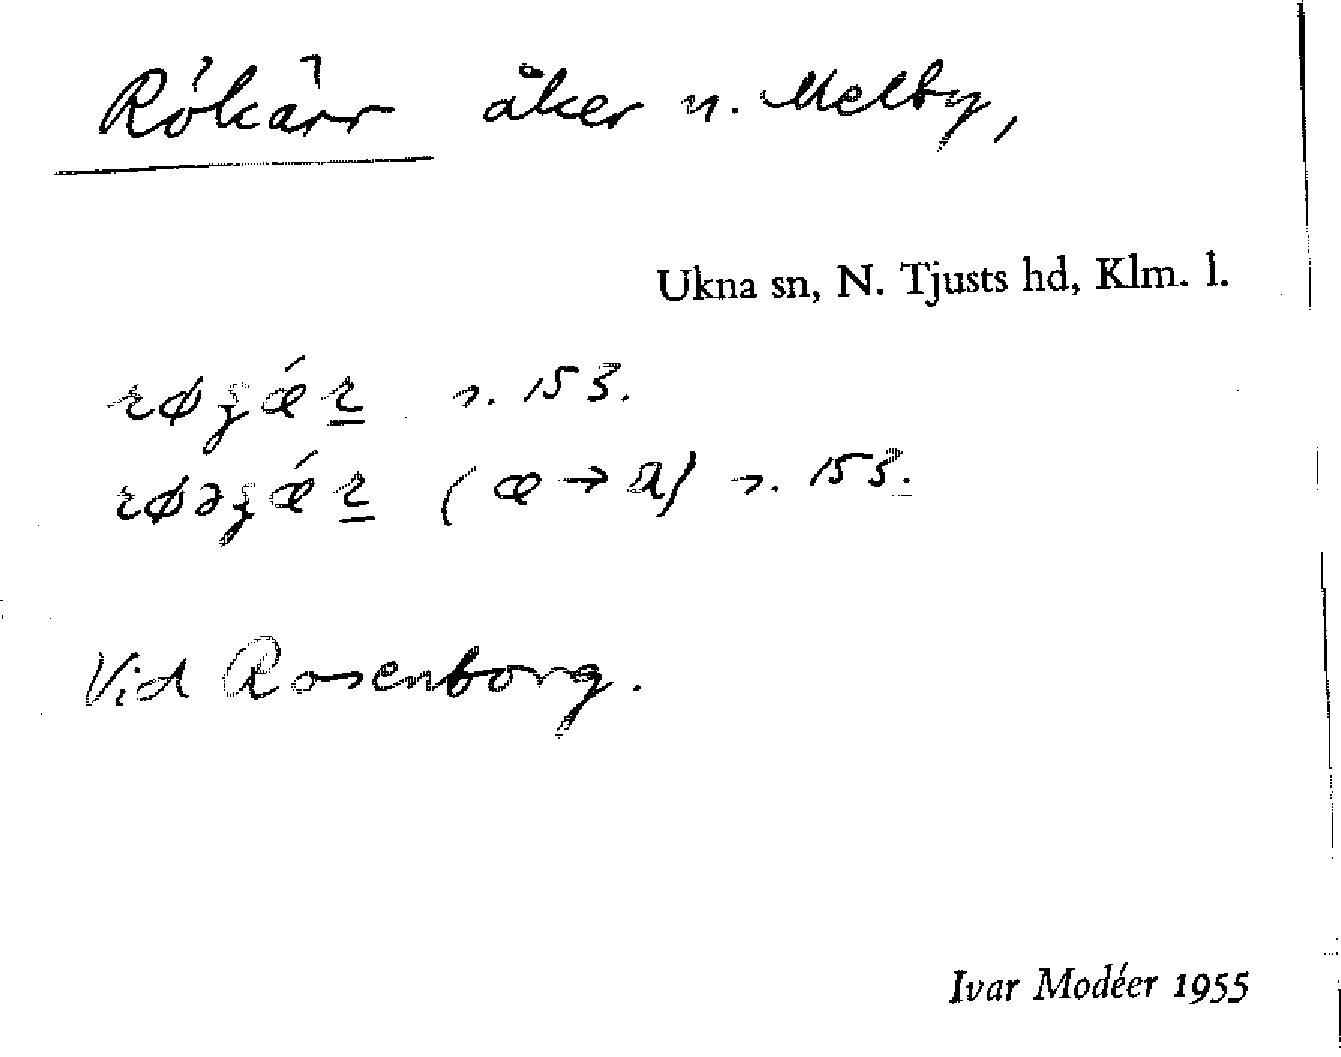 Rökärr åker n. Melby,
Ukna sn, N. Tjusts hd, Klm. l.
røʒǽr s. 153.
røəʒǽr (æ → a) s. 153.
Vid Rosenborg.
Ivar Modéer 1955